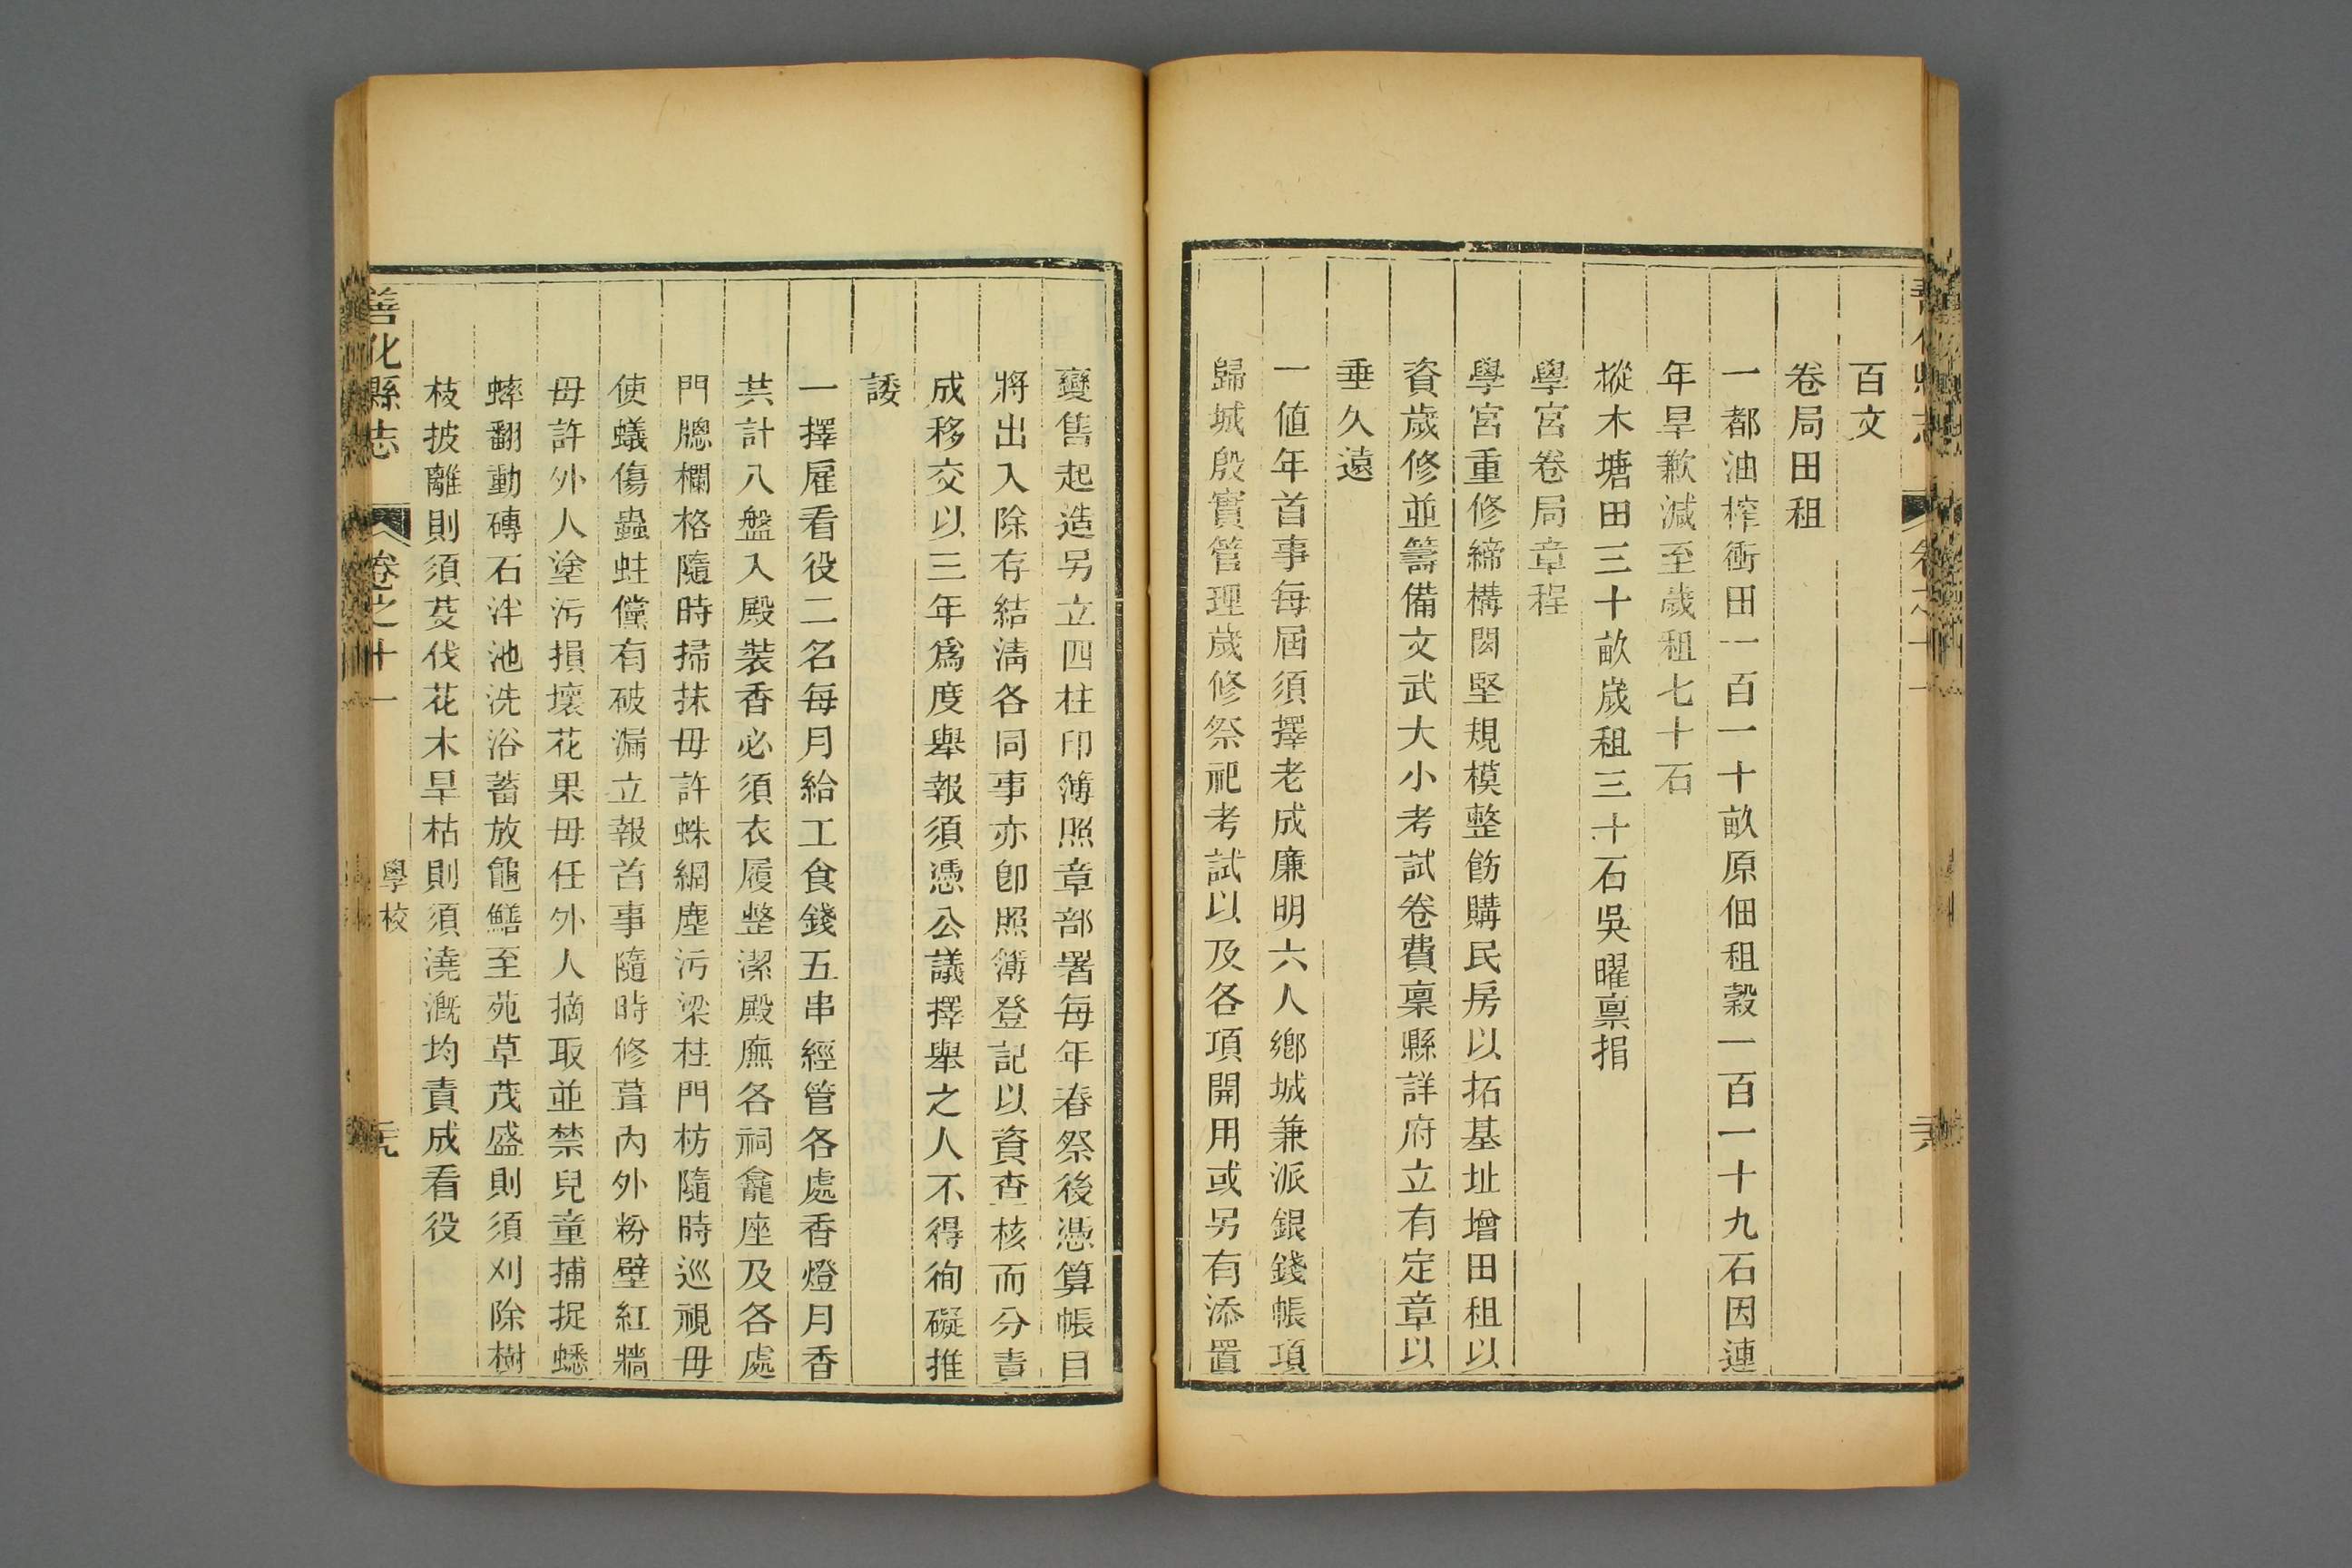 百文
卷局田租
一都油榨衝田一百一十畝原佃租穀一百一十九石因連
年旱歉減至歲租七十石
摐木塘田三十畝嵗租三十石吳曜稟捐
學宮卷局章程
學宮重修締構閎堅規模整飭購民房以拓基址增田租以
資歲修並籌備文武大小考試卷費稟縣詳府立有定章以
垂久遠
一値年首事每屆須擇老成廉明六人鄉城兼派銀錢帳項
歸城殷實管理歲修祭祀考試以及各項開用或另有添置
變售起造另立四柱印簿照章部署每年春祭後憑算帳目
將出入除存結淸各同事亦卽照簿登記以資查核而分責
成移交以三年爲度舉報須憑公議擇舉之人不得徇礙推
諉
一擇雇看役二名每月給工食錢五串經管各處香燈月香
共計八盤入殿裝香必須衣履整潔殿廡各祠龕座及各處
門牕欄格隨時掃抹毋許蛛網塵污梁柱門枋隨時巡視毋
使蟻傷蟲蛀儻有破漏立報首事隨時修葺內外粉壁紅牆
毋許外人塗污損壞花果毋任外人摘取並禁兒童捕捉蟋
蟀翻動磚石泮池洗浴蓄放龜鱔至苑草茂盛則須刈除樹
枝披離則須芟伐花木旱枯則須澆漑均責成看役
善化縣志 卷之十一 學校 完